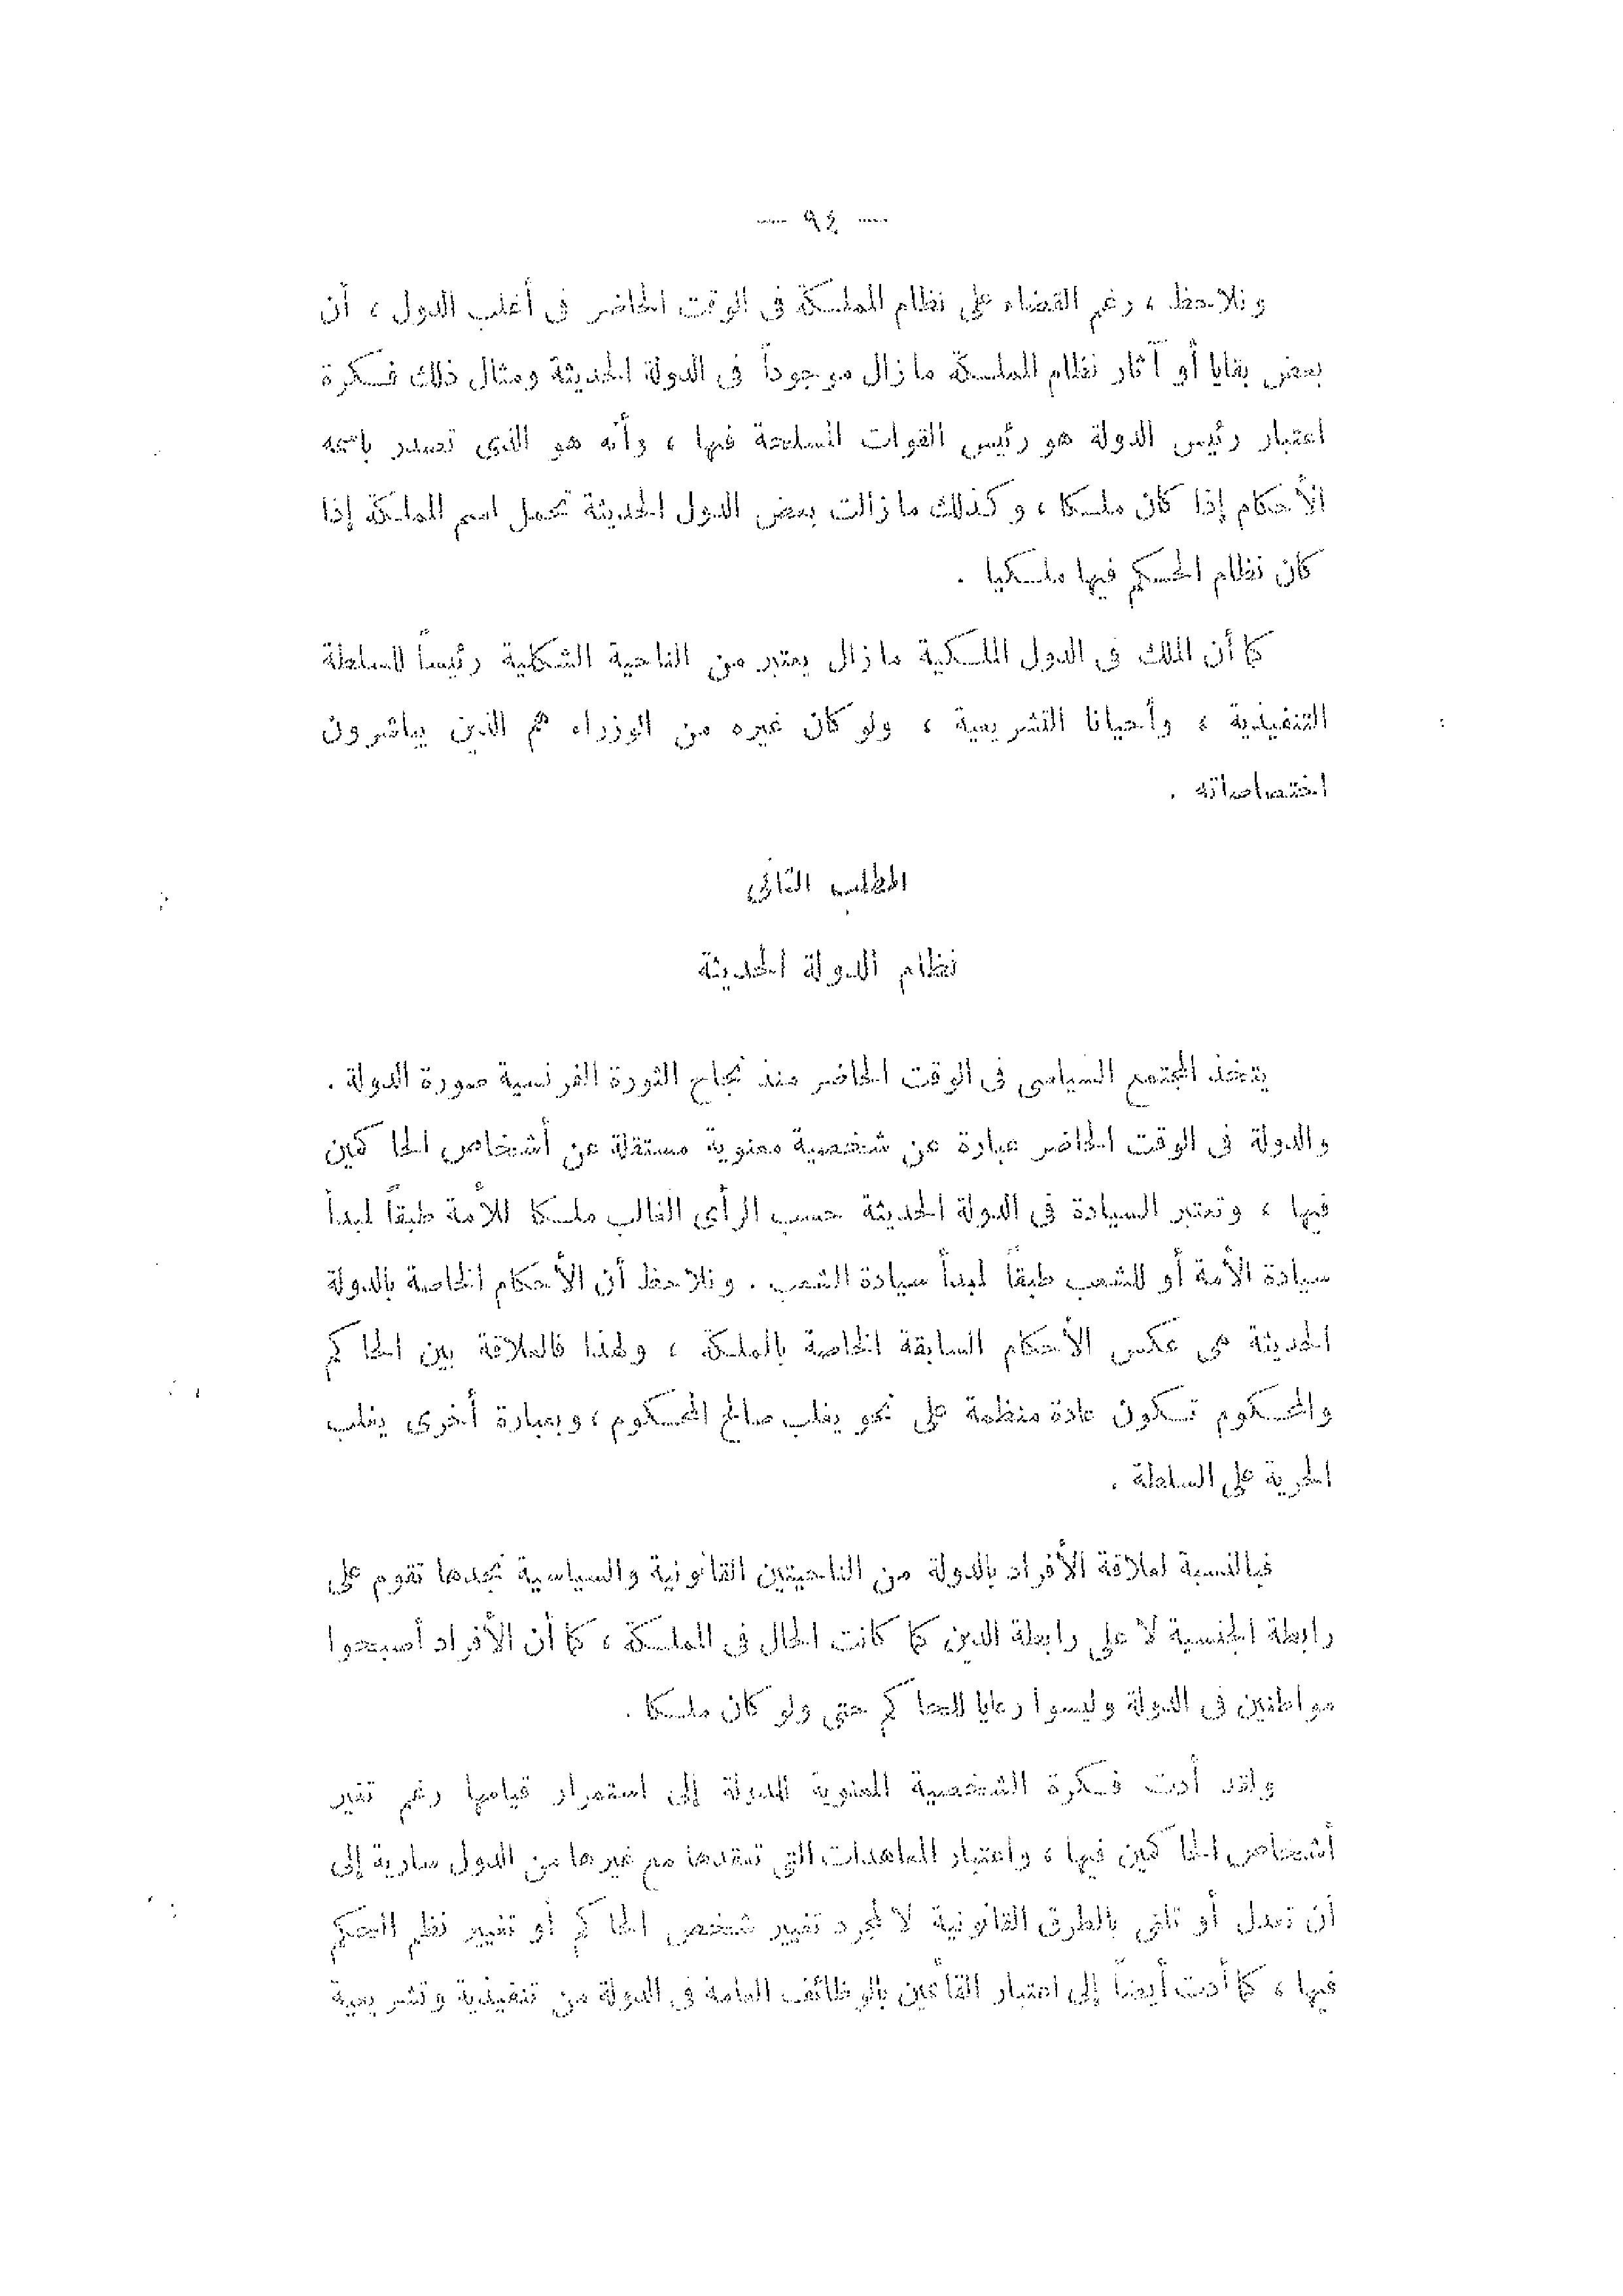 — ٩٤ —
ونلاحظ ، رغم القضاء على نظام المملكة فى الوقت الحاضر فى أغلب الدول ، أن
بعض بقايا أو آثار نظام المملكة مازال موجوداً فى الدولة الحديثة ومثال ذلك فكرة
اعتبار رئيس الدولة هو رئيس القوات المسلحة فيها ، وأنه هو الذى تصدر باسمه
الأحكام إذا كان ملكا ، وكذلك مازالت بعض الدول الحديثة تحمل اسم المملكة إذا
كان نظام الحكم فيها ملكيا .
كما أن الملك فى الدول الملكية مازال يعتبر من الناحية الشكلية رئيساً للسلطة
التنفيذية ، وأحيانا التشريعية ، ولو كان غيره من الوزراء هم الذين يباشرون
اختصاصاته .
المطلب الثانى
نظام الدولة الحديثة
يتخذ المجتمع السياسى فى الوقت الحاضر منذ نجاح الثورة الفرنسية صورة الدولة .
والدولة فى الوقت الحاضر عبارة عن شخصية معنوية مستقلة عن أشخاص الحاكمين
فيها ، وتعتبر السيادة فى الدولة الحديثة حسب الرأى الغالب ملكا للأمة طبقاً لمبدأ
سيادة الأمة أو للشعب طبقاً لمبدأ سيادة الشعب . ونلاحظ أن الأحكام الخاصة بالدولة
الحديثة هى عكس الأحكام السابقة الخاصة بالمملكة ، ولهذا فالعلاقة بين الحاكم
والمحكوم تكون عادة منظمة على نحو يغلب صالح المحكوم ، وبعبارة أخرى يغلب
الحرية على السلطة .
فبالنسبة لعلاقة الأفراد بالدولة من الناحيتين القانونية والسياسية نجدها تقوم على
رابطة الجنسية لا على رابطة الدين كما كانت الحال فى المملكة ، كما أن الأفراد أصبحوا
مواطنين فى الدولة وليسوا رعايا للحاكم حتى ولو كان ملكا .
ولقد أدت فكرة الشخصية المعنوية للدولة إلى استمرار قيامها رغم تغير
أشخاص الحاكمين فيها ، واعتبار المعاهدات التى تعقدها مع غيرها من الدول سارية إلى
أن تعدل أو تلغى بالطرق القانونية لا لمجرد تغيير شخص الحاكم أو تغيير نظم الحكم
فيها ، كما أدت أيضاً إلى اعتبار القائمين بالوظائف العامة فى الدولة من تنفيذية وتشريعية